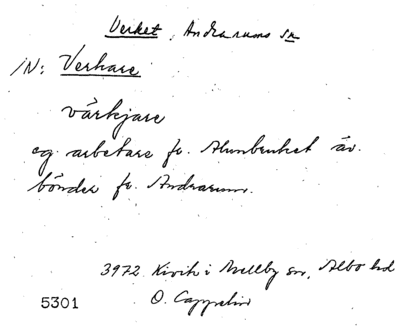 Verket, Andrarums sn
IN: Verkare
värkjare
eg. arbetare fr. Alunbruket äv.
bönder fr. Andrarum.
3972 Kivik i Mellby sn, Albo hd
5301 O. Cappelin